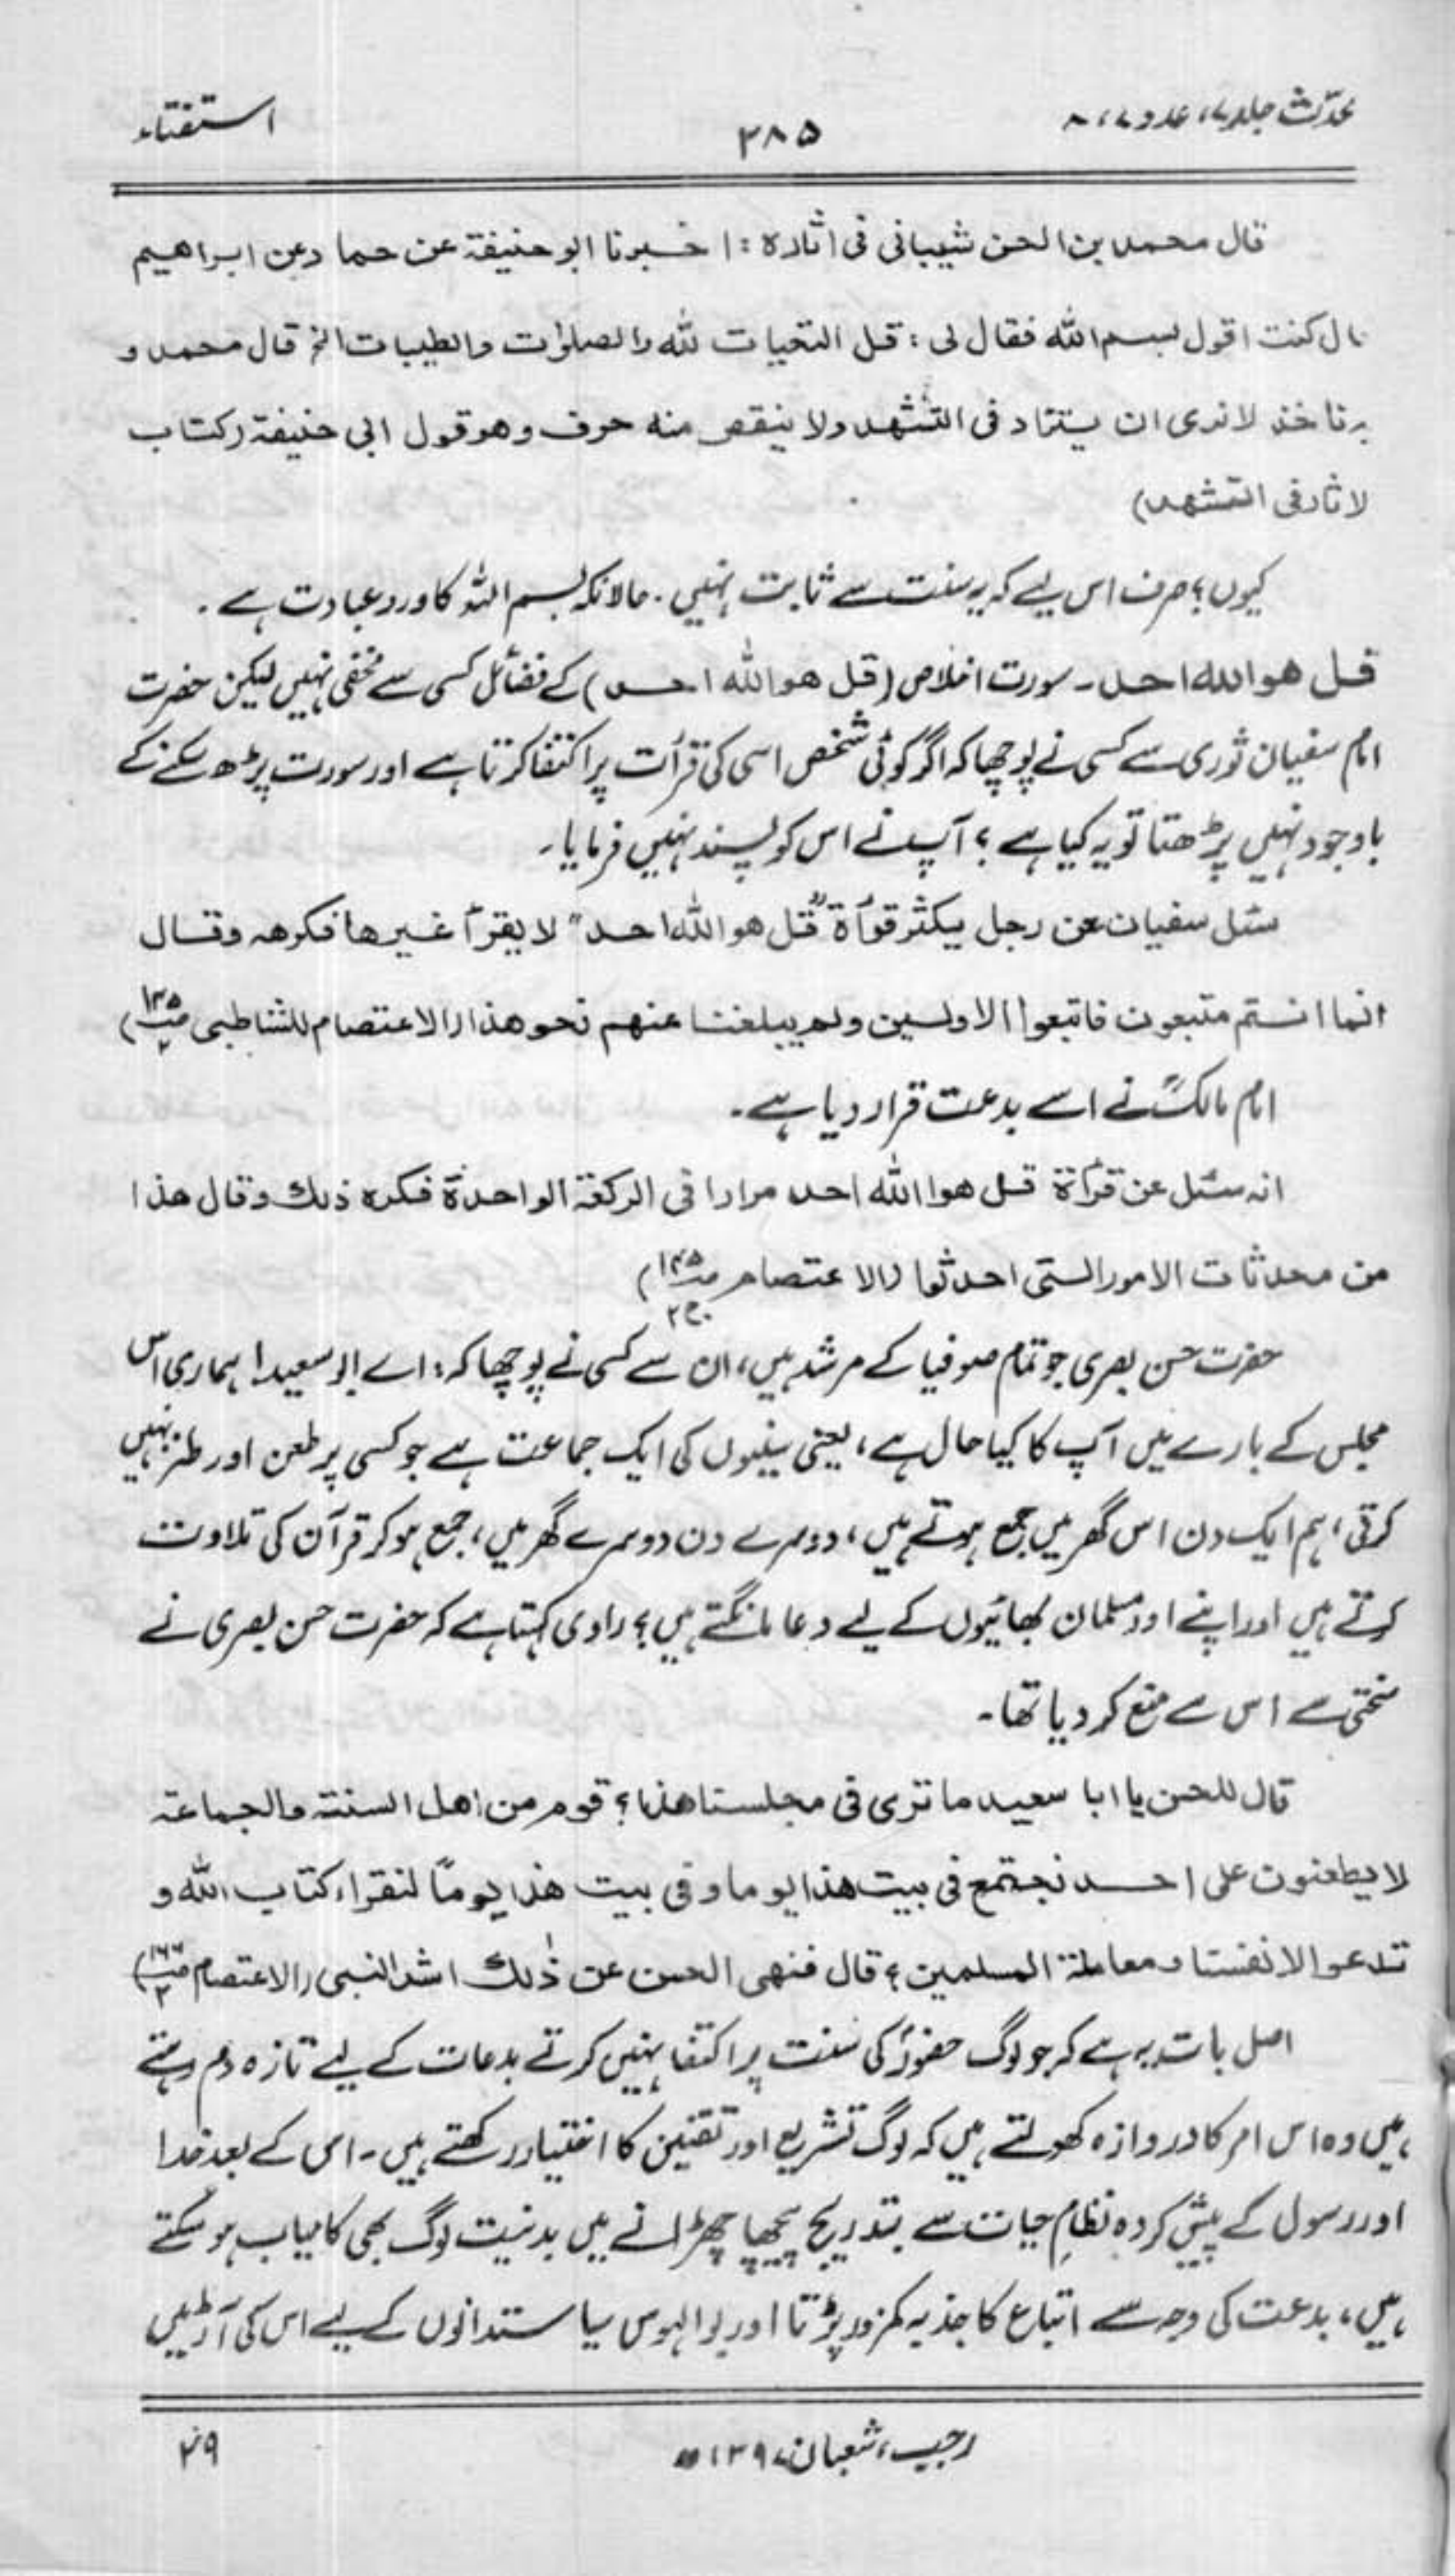 محدّث جلد ۷، عدد ۷، ۸
۳۸۵
استفتاء
قال محمد بن الحسن شیبانی فی اثاره : اخبرنا ابو حنیفة عن حماد عن ابراهیم
ال کنت اقول بسم الله فقال لی : قل التحیات لله والصلوات والطیبات الخ قال محمد و
به ناخذ لا نری ان یتزاد فی التشهد ولا ینقص منه حرف وهو قول ابی حنیفة (کتاب
لاثار فی التشهد)
کیوں؟ صرف اس لیے کہ یہ سنت سے ثابت نہیں۔ حالانکہ بسم اللہ کا ورد عبادت ہے۔
قل هو الله احد۔ سورت اخلاص (قل هو الله احد) کے فضائل کسی سے مخفی نہیں لیکن حضرت
امام سفیان ثوری سے کسی نے پوچھا کہ اگر کوئی شخص اسی کی قرأت پر اکتفا کرتا ہے اور سورت پڑھ سکنے کے
باوجود نہیں پڑھتا تو یہ کیا ہے؟ آپ نے اس کو پسند نہیں فرمایا۔
سئل سفیان عن رجل یکثر قرأة "قل هو الله احد" لا یقرأ غیرها فکرهه وقال
انما انتم متبعون فاتبعوا الاولین ولم یبلغنا عنهم نحو هذا (الاعتصام للشاطبی
امام مالکؒ نے اسے بدعت قرار دیا ہے۔
انه سئل عن قرأة قل هو الله احد مرارا فی الرکعة الواحدة فکره ذلك وقال هذا
من محدثات الامور التی احدثوا (الاعتصام
حضرت حسن بصری جو تمام صوفیا کے مرشد ہیں، ان سے کسی نے پوچھا کہ: اے ابو سعید! ہماری اس
مجلس کے بارے میں آپ کا کیا حال ہے، یعنی سنیوں کی ایک جماعت ہے جو کسی پر طعن اور طنز نہیں
کرتی، ہم ایک دن اس گھر میں جمع ہوتے ہیں، دوسرے دن دوسرے گھر میں، جمع ہو کر قرآن کی تلاوت
کرتے ہیں اور اپنے اور مسلمان بھائیوں کے لیے دعا مانگتے ہیں؟ راوی کہتا ہے کہ حضرت حسن بصری نے
سختی سے اس سے منع کر دیا تھا۔
قال للحسن یا ابا سعید ما تری فی مجلسنا هذا؟ قوم من اهل السنة والجماعة
لا یطعنون علی احد نجتمع فی بیت هذا یوما وفی بیت هذا یوماً لنقراء کتاب الله و
تدعو الانفسنا و معاملة المسلمین؟ قال فنهی الحسن عن ذلك اشد النهی (الاعتصام
اصل بات یہ ہے کہ جو لوگ حضورؐ کی سنت پر اکتفا نہیں کرتے بدعات کے لیے تازہ دم رہتے
ہیں وہ اس امر کا دروازہ کھولتے ہیں کہ لوگ تشریع اور تقنین کا اختیار رکھتے ہیں۔ اس کے بعد خدا
اور رسول کے پیش کردہ نظامِ حیات سے بتدریج پیچھا چھڑانے میں بدنیت لوگ بھی کامیاب ہو سکتے
ہیں، بدعت کی وجہ سے اتباع کا جذبہ کمزور پڑتا اور بوالہوس سیاستدانوں کے لیے اس کی آڑ میں
رجب، شعبان ۱۳۹۷ھ
۴۹